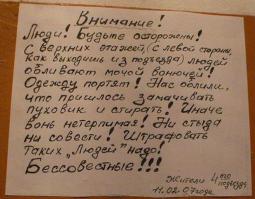 Внимание!
Люди! Будьте осторожены!
С верхних этажей, (с левой стороны,
как выходишь из подъезда) людей
обливают мочой вонючей!
Одежду портят! Нас облили,
что пришлось замачивать
пуховик и стирать! Иначе
вонь нетерпимая! Ни стыда
ни совести! Штрафовать
таких „Людей" надо!
Бессовестные!!!
Жители 4его
подъезда
11.02.07года